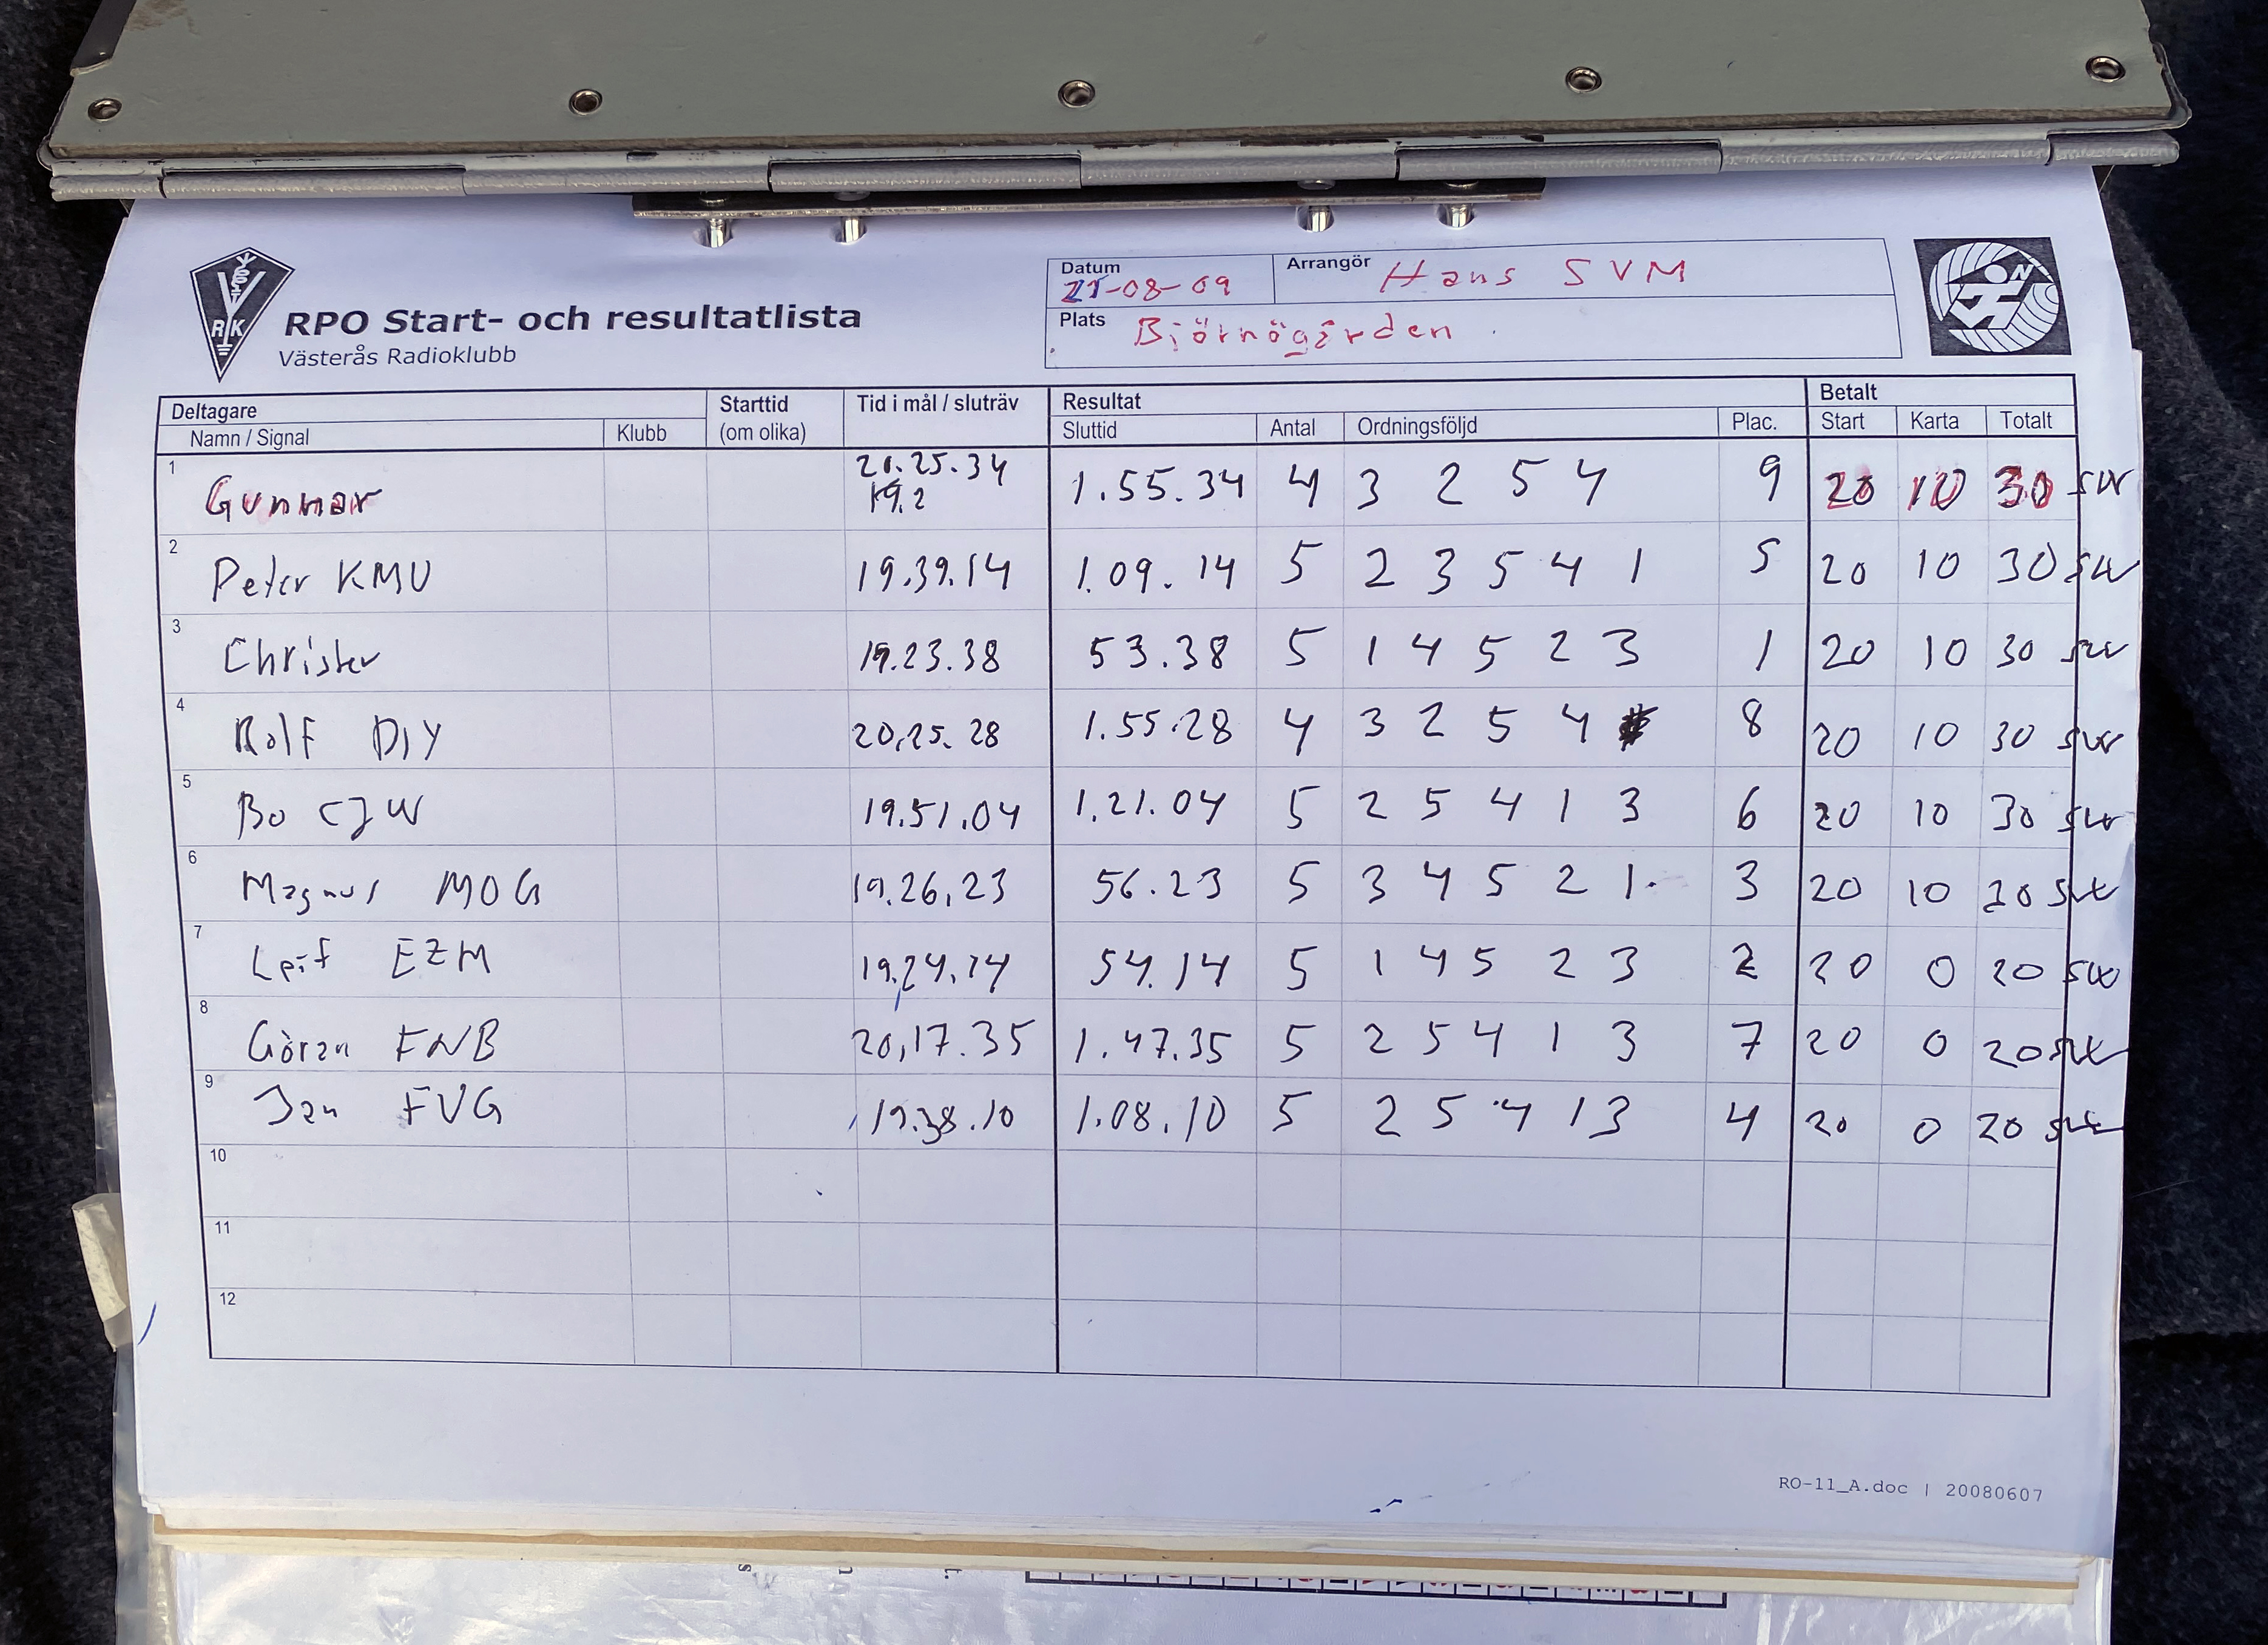 RPO Start- och resultatlista
Västerås Radioklubb
Datum Arrangör Hans SVM
21-08-09
Plats Björnögården
Deltagare Starttid Tid i mål / sluträv Resultat Betalt
Namn / Signal Klubb (om olika) Sluttid Antal Ordningsföljd Plac. Start Karta Totalt
1 Gunnar 20.25.34 1.55.34 4 3 2 5 4 9 20 10 30 SW
19.2
2 Peter KMU 19.39.14 1.09.14 5 2 3 5 4 1 5 20 10 30 SW
3 Christer 19.23.38 53.38 5 1 4 5 2 3 1 20 10 30 SW
4 Rolf DIY 20.25.28 1.55.28 4 3 2 5 4 8 20 10 30 SW
5 Bo CJW 19.51.04 1.21.04 5 2 5 4 1 3 6 20 10 30 SW
6 Magnus MOG 19.26.23 56.23 5 3 4 5 2 1 3 20 10 20 SW
7 Leif EZM 19.24.14 54.14 5 1 4 5 2 3 2 20 0 20 SW
8 Göran FNB 20.17.35 1.47.35 5 2 5 4 1 3 7 20 0 20 SW
9 Jan FVG 19.38.10 1.08.10 5 2 5 4 1 3 4 20 0 20 SW
10
11
12
RO-11_A.doc | 20080607